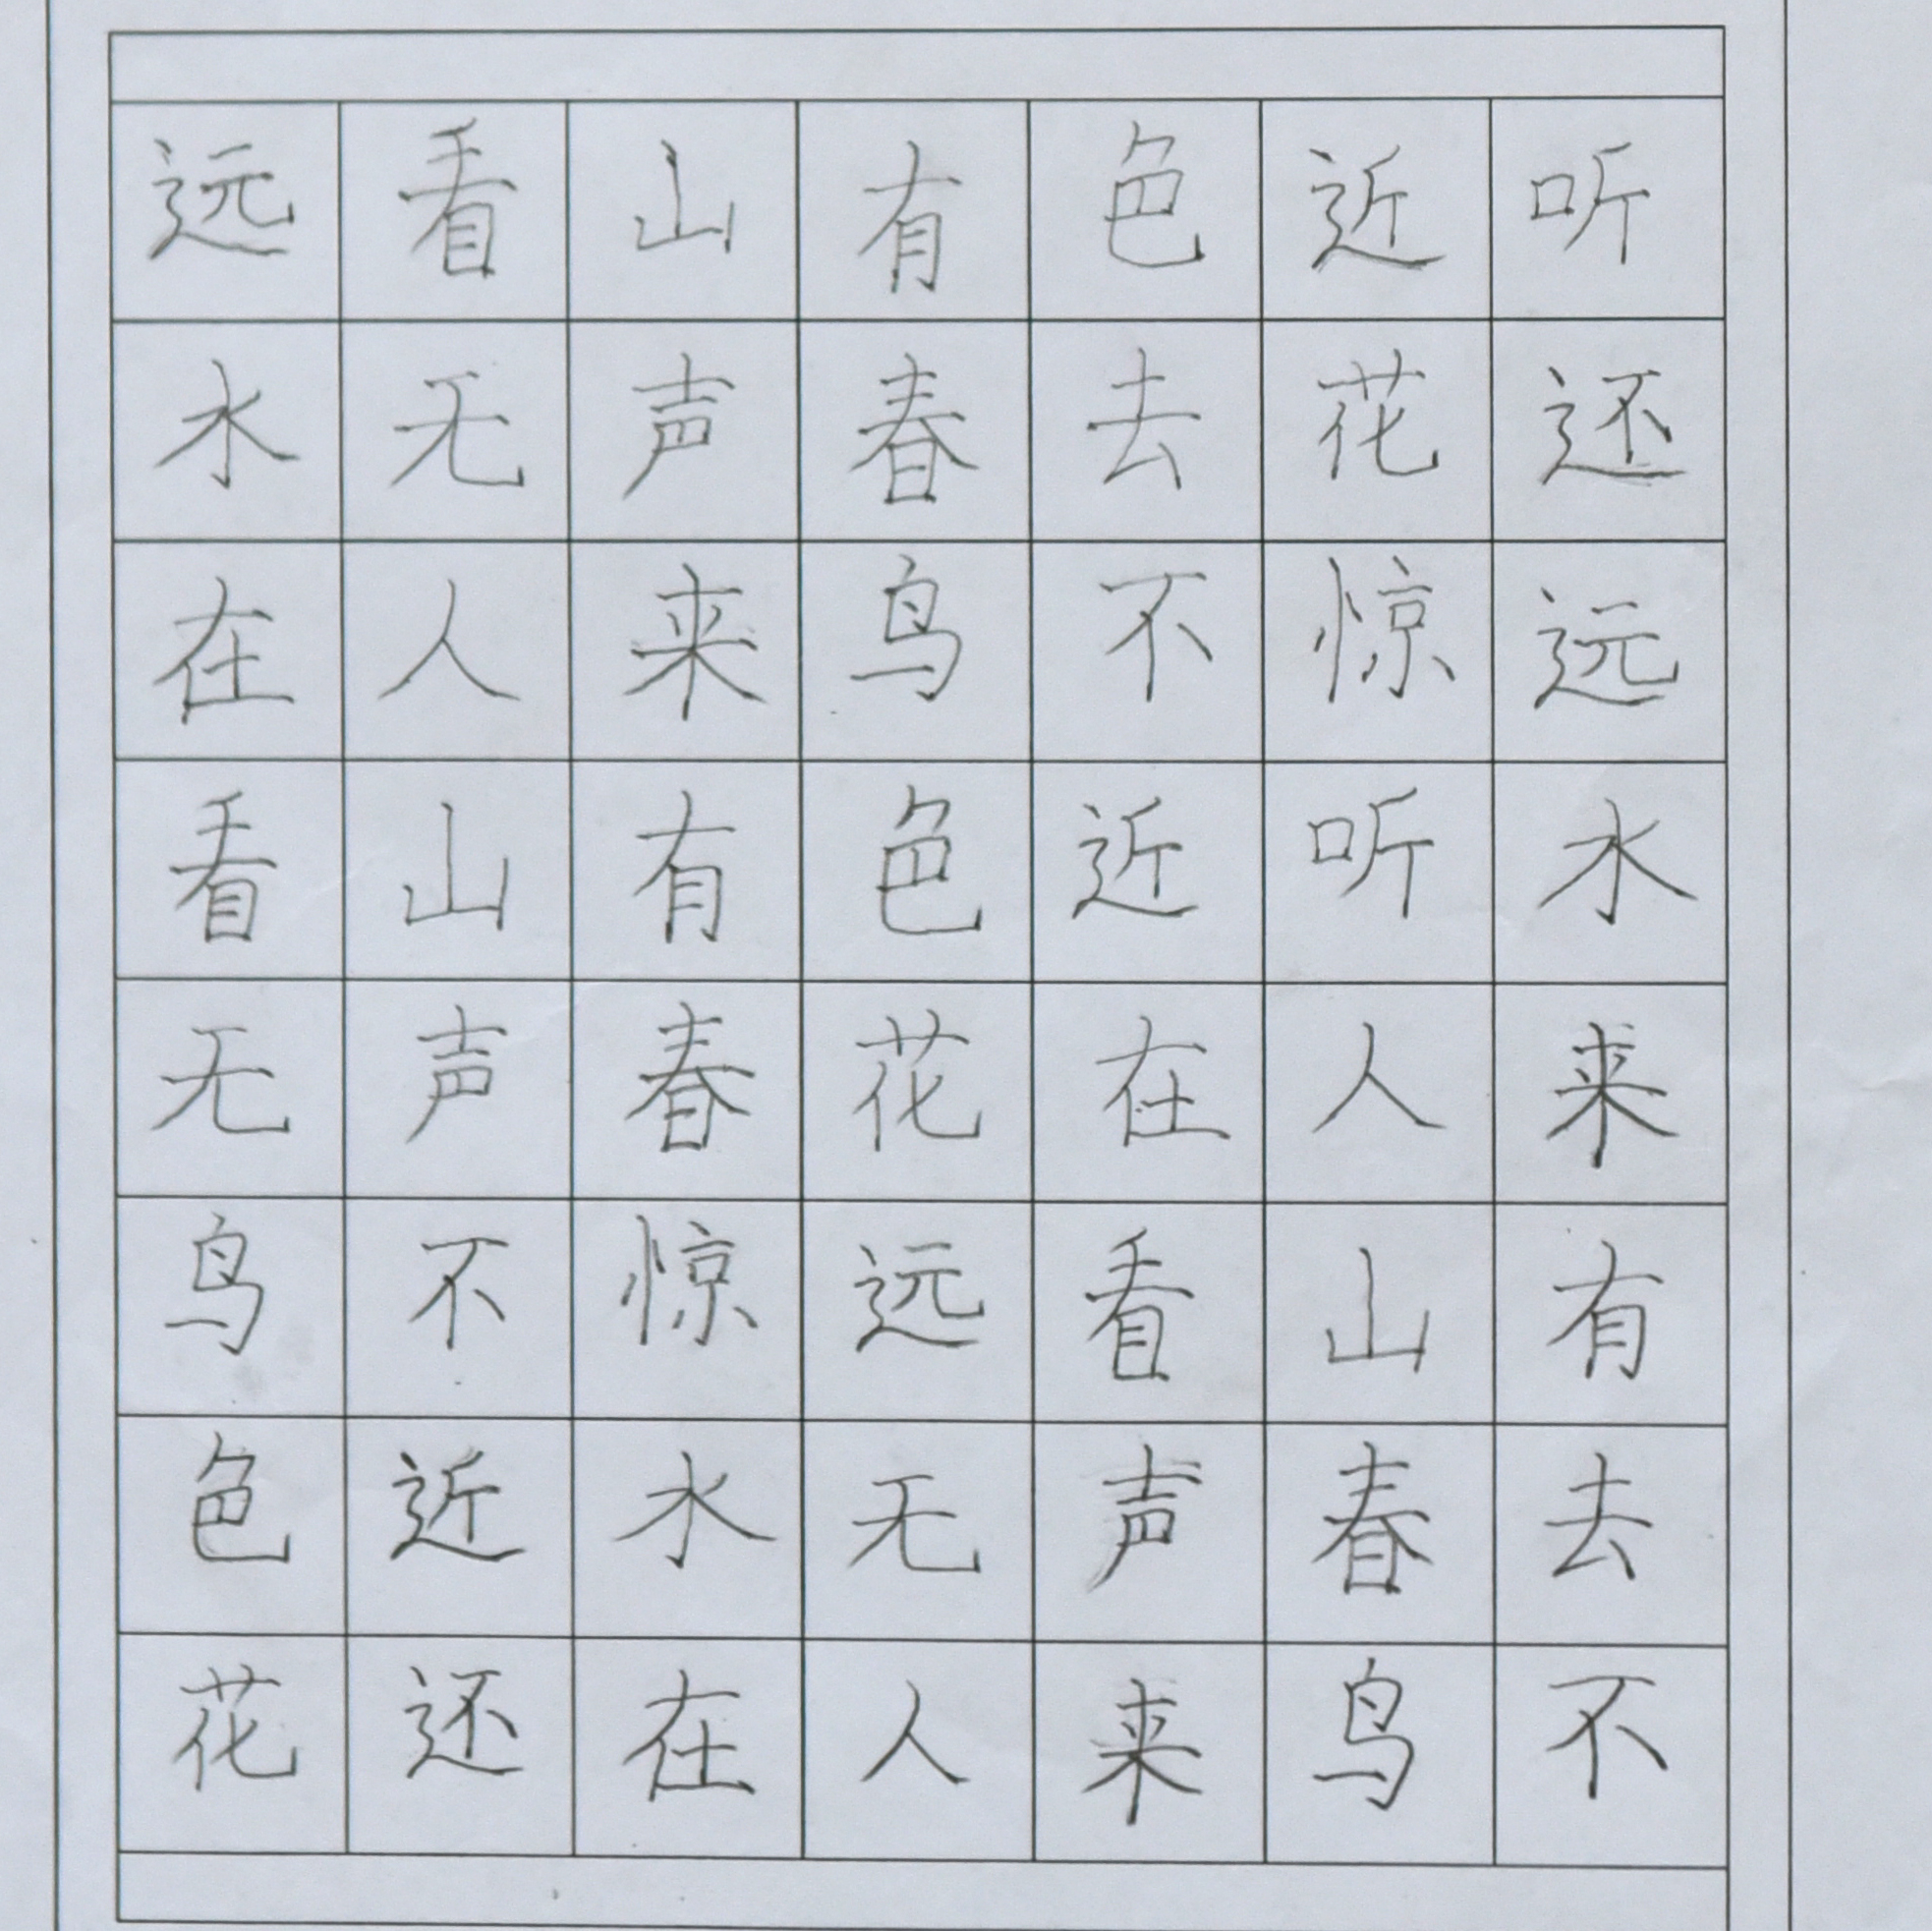 远看山有色近听
水无声春去花还
在人来鸟不惊远
看山有色近听水
无声春花在人来
鸟不惊远看山有
色近水无声春去
花还在人来鸟不